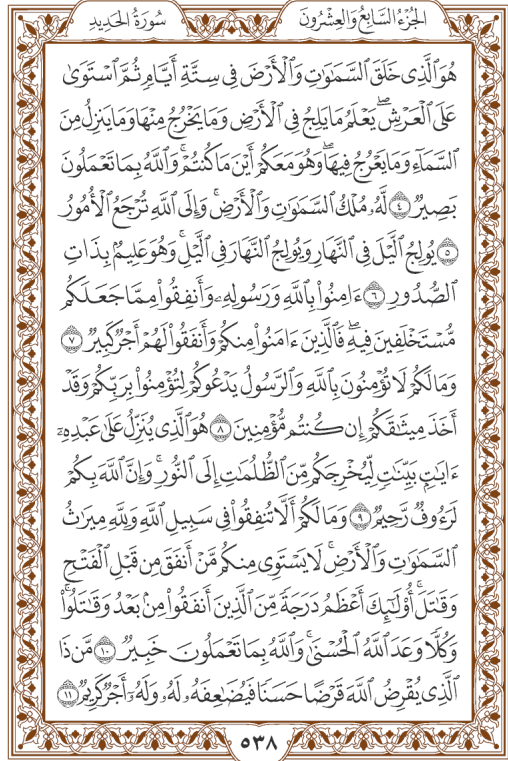 الجزء السابع والعشرون
سورة الحديد
هُوَ ٱلَّذِى خَلَقَ ٱلسَّمَٰوَٰتِ وَٱلْأَرْضَ فِى سِتَّةِ أَيَّامٍ ثُمَّ ٱسْتَوَىٰ
عَلَى ٱلْعَرْشِۖ يَعْلَمُ مَا يَلِجُ فِى ٱلْأَرْضِ وَمَا يَخْرُجُ مِنْهَا وَمَا يَنزِلُ مِنَ
ٱلسَّمَآءِ وَمَا يَعْرُجُ فِيهَاۖ وَهُوَ مَعَكُمْ أَيْنَ مَا كُنتُمْۚ وَٱللَّهُ بِمَا تَعْمَلُونَ
بَصِيرٌ ٤ لَّهُۥ مُلْكُ ٱلسَّمَٰوَٰتِ وَٱلْأَرْضِۚ وَإِلَى ٱللَّهِ تُرْجَعُ ٱلْأُمُورُ
٥ يُولِجُ ٱلَّيْلَ فِى ٱلنَّهَارِ وَيُولِجُ ٱلنَّهَارَ فِى ٱلَّيْلِۚ وَهُوَ عَلِيمٌۢ بِذَاتِ
ٱلصُّدُورِ ٦ ءَامِنُوا۟ بِٱللَّهِ وَرَسُولِهِۦ وَأَنفِقُوا۟ مِمَّا جَعَلَكُم
مُّسْتَخْلَفِينَ فِيهِۖ فَٱلَّذِينَ ءَامَنُوا۟ مِنكُمْ وَأَنفَقُوا۟ لَهُمْ أَجْرٌ كَبِيرٌ ٧
وَمَا لَكُمْ لَا تُؤْمِنُونَ بِٱللَّهِ وَٱلرَّسُولُ يَدْعُوكُمْ لِتُؤْمِنُوا۟ بِرَبِّكُمْ وَقَدْ
أَخَذَ مِيثَٰقَكُمْ إِن كُنتُم مُّؤْمِنِينَ ٨ هُوَ ٱلَّذِى يُنَزِّلُ عَلَىٰ عَبْدِهِۦٓ
ءَايَٰتٍۭ بَيِّنَٰتٍ لِّيُخْرِجَكُم مِّنَ ٱلظُّلُمَٰتِ إِلَى ٱلنُّورِۚ وَإِنَّ ٱللَّهَ بِكُمْ
لَرَءُوفٌ رَّحِيمٌ ٩ وَمَا لَكُمْ أَلَّا تُنفِقُوا۟ فِى سَبِيلِ ٱللَّهِ وَلِلَّهِ مِيرَٰثُ
ٱلسَّمَٰوَٰتِ وَٱلْأَرْضِۚ لَا يَسْتَوِى مِنكُم مَّنْ أَنفَقَ مِن قَبْلِ ٱلْفَتْحِ
وَقَٰتَلَۚ أُو۟لَٰٓئِكَ أَعْظَمُ دَرَجَةً مِّنَ ٱلَّذِينَ أَنفَقُوا۟ مِنۢ بَعْدُ وَقَٰتَلُوا۟ۚ
وَكُلًّا وَعَدَ ٱللَّهُ ٱلْحُسْنَىٰۚ وَٱللَّهُ بِمَا تَعْمَلُونَ خَبِيرٌ ١٠ مَّن ذَا
ٱلَّذِى يُقْرِضُ ٱللَّهَ قَرْضًا حَسَنًا فَيُضَٰعِفَهُۥ لَهُۥ وَلَهُۥٓ أَجْرٌ كَرِيمٌ ١١
٥٣٨